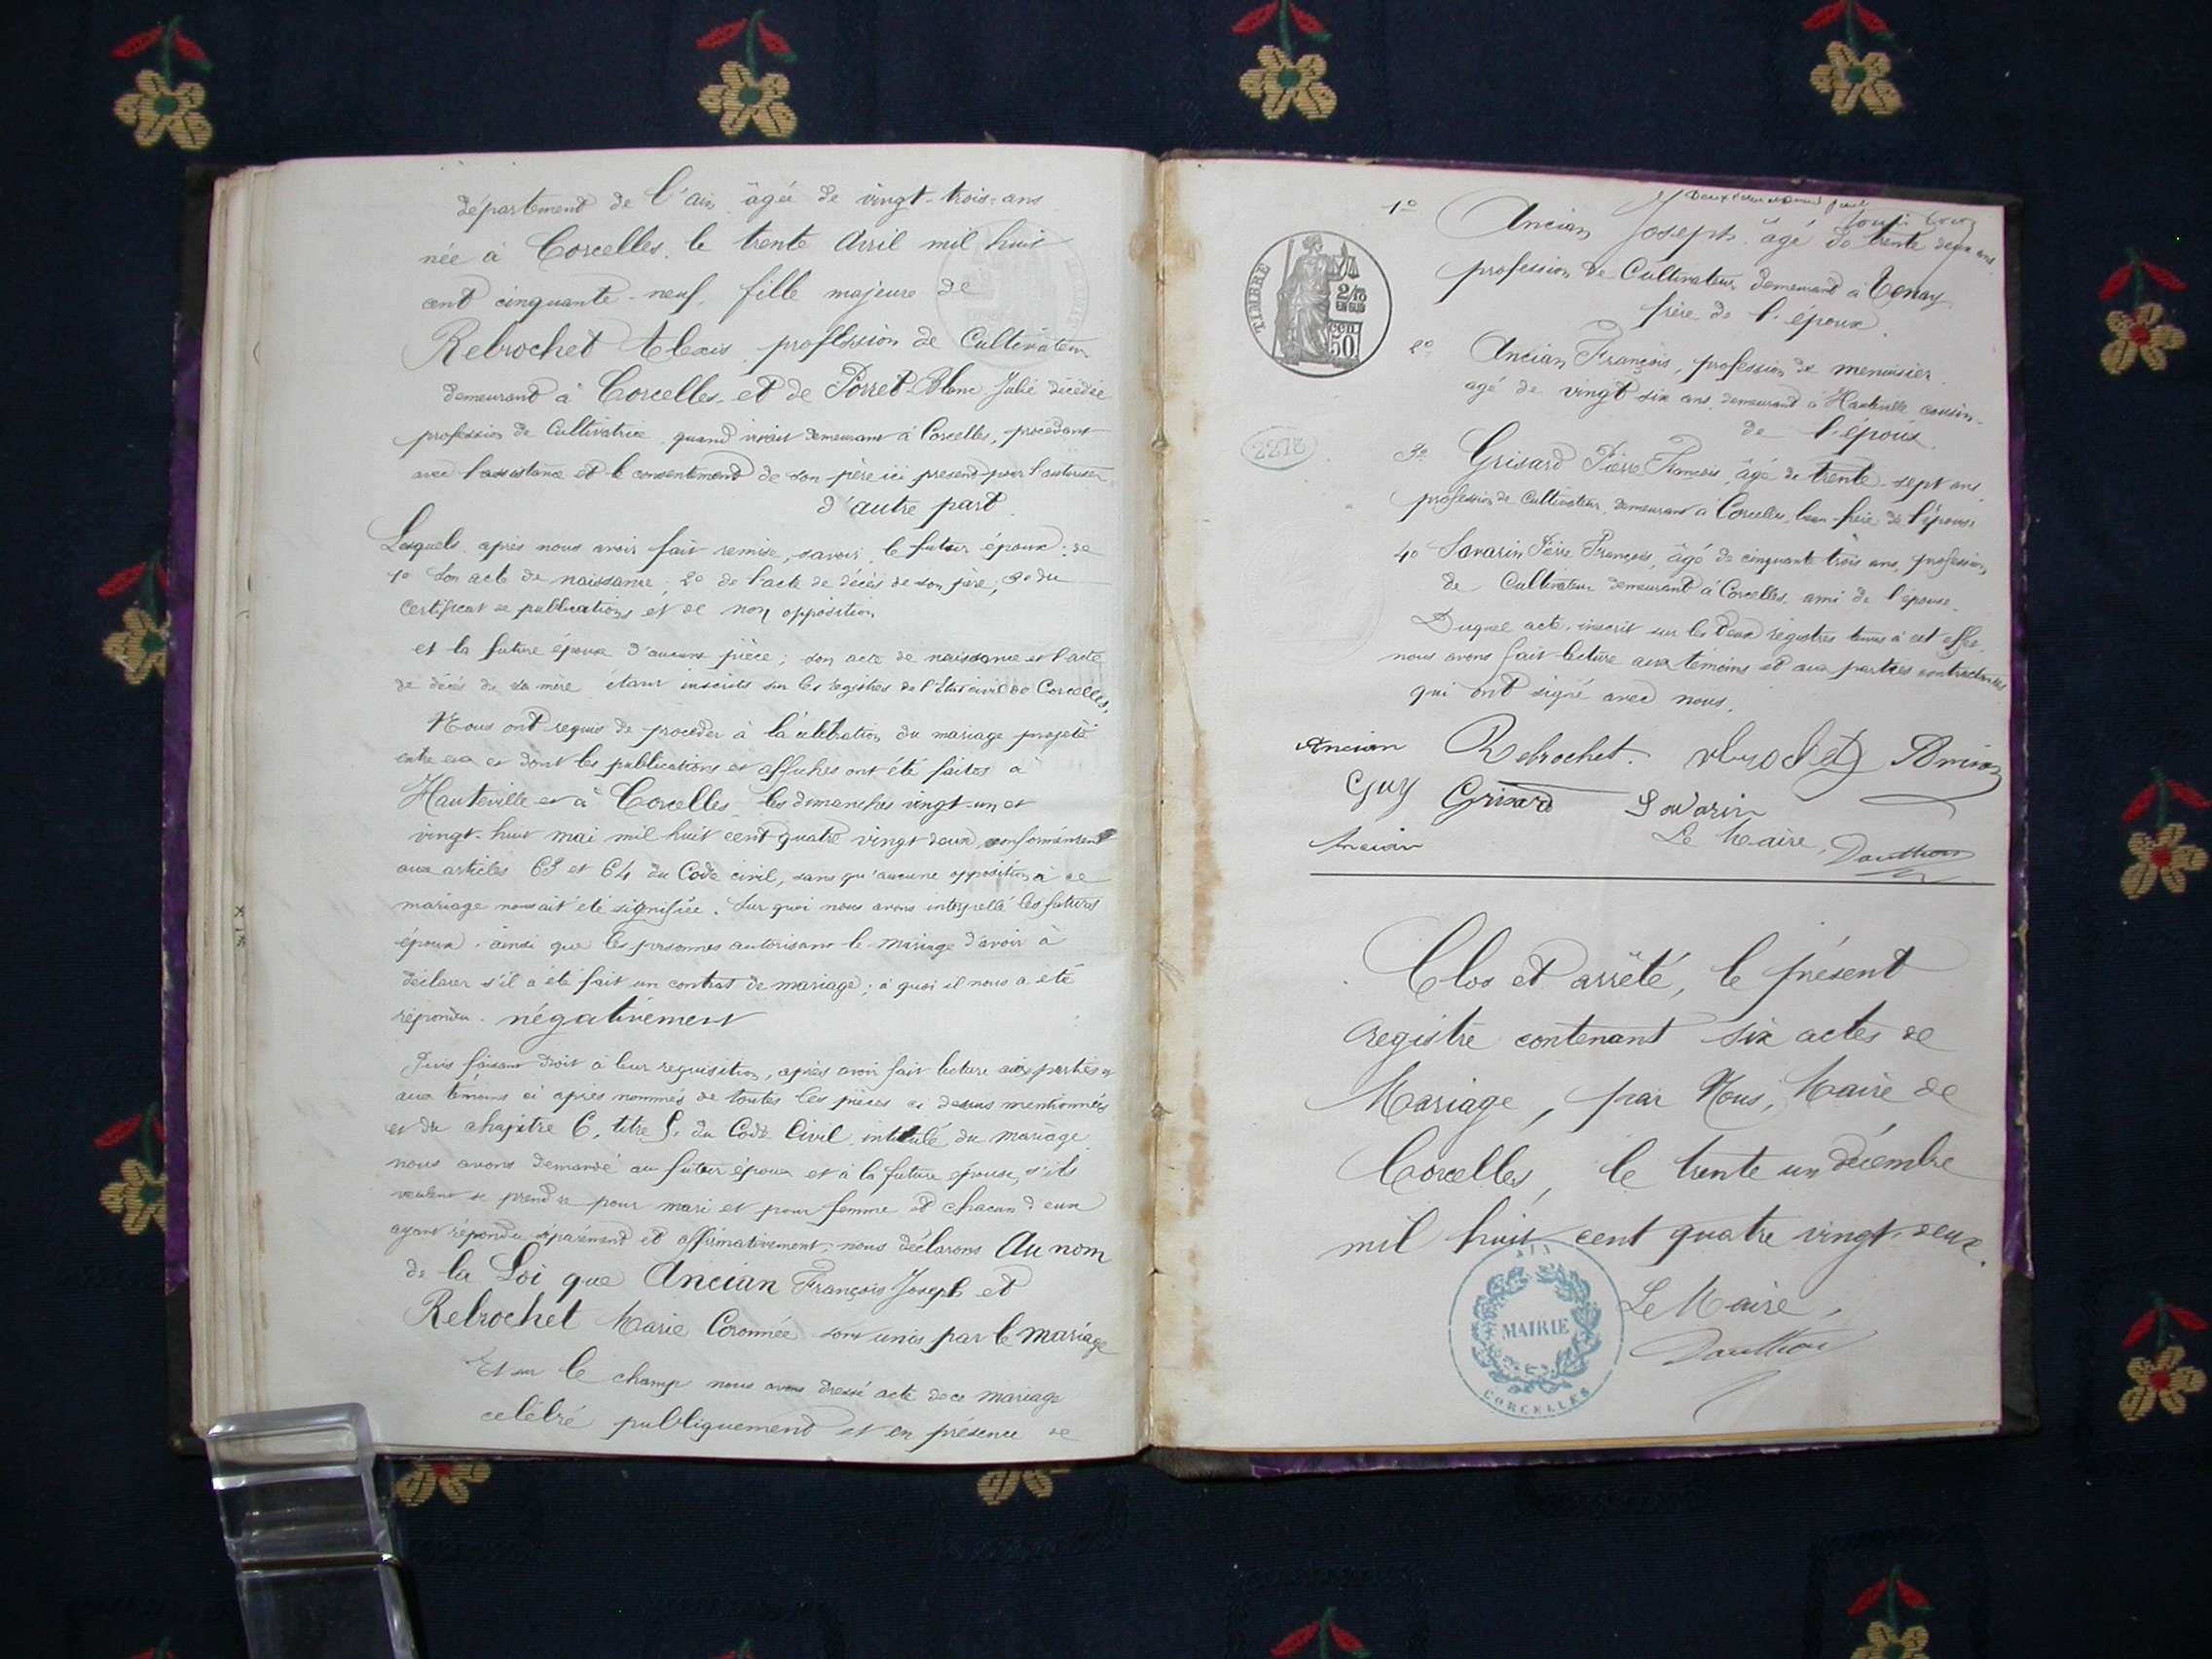 département de l'ain âgée de vingt-trois-ans
née à Corcelles. le trente Avril mil huit
cent cinquante-neuf, fille majeure de
Rebrochet Alexis, profession de Cultivateur
demeurant à Corcelles et de Porret-Blanc Julie décédée
profession de Cultivatrice quand vivait demeurant à Corcelles, procédant
avec l'assistance et le consentement de son père ici présent pour l'autoriser
d'autre part.
Lesquels après nous avoir fait remise, savoir, le futur époux: de
1º Son acte de naissance; 2º de l'acte de décès de son père; 3º du
Certificat de publications et de non opposition
et la future épouse d'aucune pièce; son acte de naissance et l'acte
de décès de sa mère étant inscrits sur les registres de l'Etat civil de Corcelles,
Nous ont requis de procéder à la célébration du mariage projeté
entre eux et dont les publications et affiches ont été faites à
Hauteville et à Corcelles les dimanches vingt-un et
vingt-huit mai mil huit cent quatre vingt deux, conformément
aux articles 63 et 64 du Code civil, sans qu'aucune opposition à ce
mariage nous ait été signifiée. Sur quoi nous avons interpellé les futurs
époux, ainsi que les personnes autorisant le mariage d'avoir à
déclarer s'il a été fait un contrat de mariage; à quoi il nous a été
répondu négativement
Puis faisant droit à leur requisition, après avoir fait lecture aux parties et
aux témoins ci après nommés de toutes les pièces ci dessus mentionnées
et du chapitre 6, titre 5, du Code Civil, intitulé du mariage
nous avons demandé au futur époux et à la future épouse, s'ils
veulent se prendre pour mari et pour femme et chacun d'eux
ayant répondu séparément et affirmativement, nous déclarons Au nom
de la Loi que Ancian François Joseph et
Rebrochet Marie Coronnée sont unis par le mariage
Et sur le champ nous avons dressé acte de ce mariage
célébré publiquement et en présence de
1º Ancian Joseph âgé de trente deux ans
profession de Cultivateur demeurant à Tenay
frère de l'époux.
TIMBRE
2/10 EN SUS
50 CEN
2º Ancian François, profession de menuisier
agé de vingt six ans, demeurant à Hauteville cousin
de l'époux.
2278
3º Grisard Pierre François, âgé de trente-sept ans
profession de Cultivateur, demeurant à Corcelles, beau-frère de l'épouse
4º Savarin Pierre François, âgé de cinquante trois ans, profession
de Cultivateur demeurant à Corcelles, ami de l'épouse.
Duquel acte, inscrit sur les deux régistres tenus à cet effet,
nous avons fait lecture aux témoins et aux parties contractantes
qui ont signé avec nous.
Ancian Rebrochet. Ancian
Guy Grisard Savarin
Ancian Le Maire, Dauthon
Clos et arrêté, le présent
registre contenant six actes de
Mariage, par Nous, Maire de
Corcelles, le trente un décembre
mil huit cent quatre vingt-deux.
AIN
MAIRIE
CORCELLES
Le Maire,
Dauthon